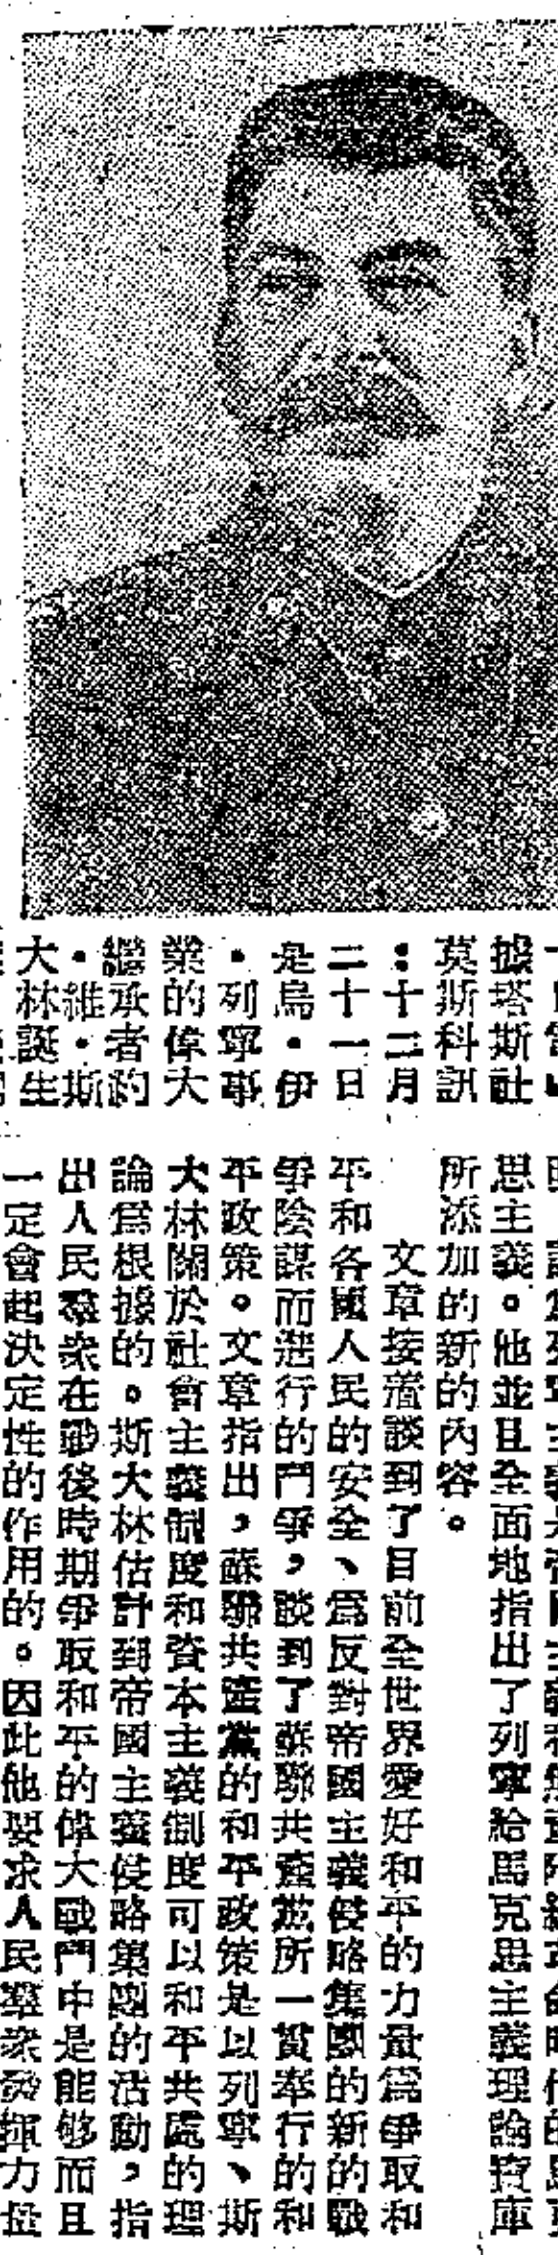 據塔斯社
莫斯科訊
：十二月
二十一日
是烏·伊
·列寧事
業的偉大
繼承者約
·維·斯
大林誕生
思主義。他並且全面地指出了列寧給馬克思主義理論寶庫
所添加的新的內容。
文章接着談到了目前全世界愛好和平的力量爲爭取和
平和各國人民的安全、爲反對帝國主義侵略集團的新的戰
爭陰謀而進行的鬥爭，談到了蘇聯共產黨所一貫奉行的和
平政策。文章指出，蘇聯共產黨的和平政策是以列寧、斯
大林關於社會主義制度和資本主義制度可以和平共處的理
論爲根據的。斯大林估計到帝國主義侵略集團的活動，指
出人民羣衆在戰後時期爭取和平的偉大戰鬥中是能够而且
一定會起決定性的作用的。因此他要求人民羣衆發揮力量